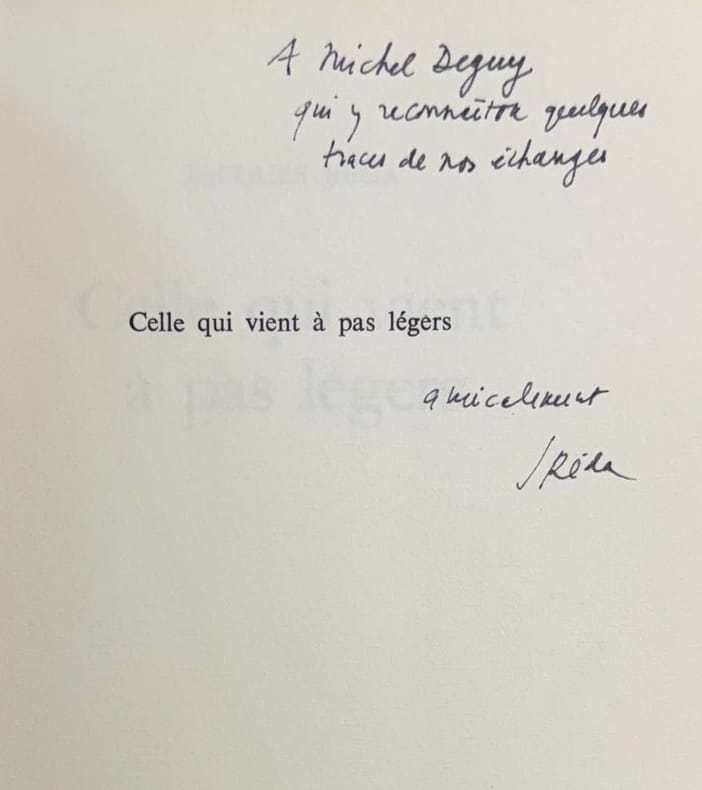 A Michel Deguy
qui y reconnaîtra quelques
traces de nos échanges
Celle qui vient à pas légers
amicalement
J Réda